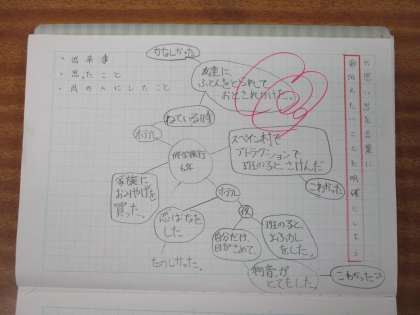 思い出を言葉に
伝えたいことを明確にしよう
・出来事
・思ったこと
・周りの人にしたこと
かなしかった
友達に
ふとんをとられて
おとされかけた。
ねている時
ホテル
修学旅行
6年
スペイン村で
アトラクションで
班の人とさけんだ
こわかった
家族に
おみやげを
買った。
ホテル
恋ばなを
した
たのしかった。
夜
自分だけ、
目がさめて、
班の人と
まくらなげ
をした。
物音が
とてもした。
こわかった